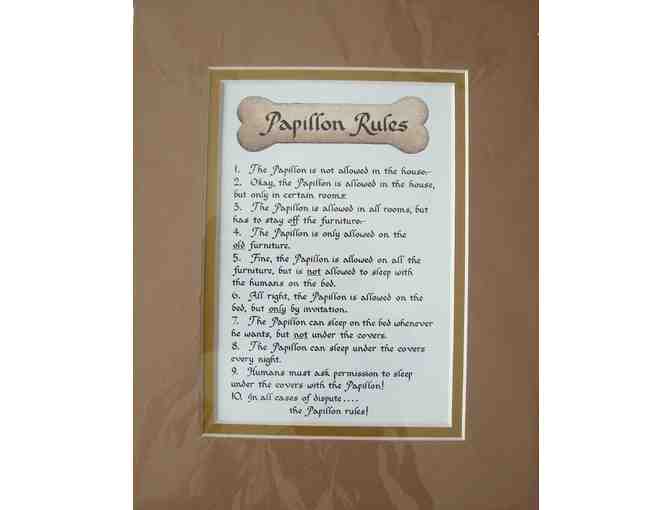 Papillon Rules
1. The Papillon is not allowed in the house.
2. Okay, the Papillon is allowed in the house,
but only in certain rooms.
3. The Papillon is allowed in all rooms, but
has to stay off the furniture.
4. The Papillon is only allowed on the
old furniture.
5. Fine, the Papillon is allowed on all the
furniture, but is not allowed to sleep with
the humans on the bed.
6. All right, the Papillon is allowed on the
bed, but only by invitation.
7. The Papillon can sleep on the bed whenever
he wants, but not under the covers.
8. The Papillon can sleep under the covers
every night.
9. Humans must ask permission to sleep
under the covers with the Papillon!
10. In all cases of dispute....
the Papillon rules!